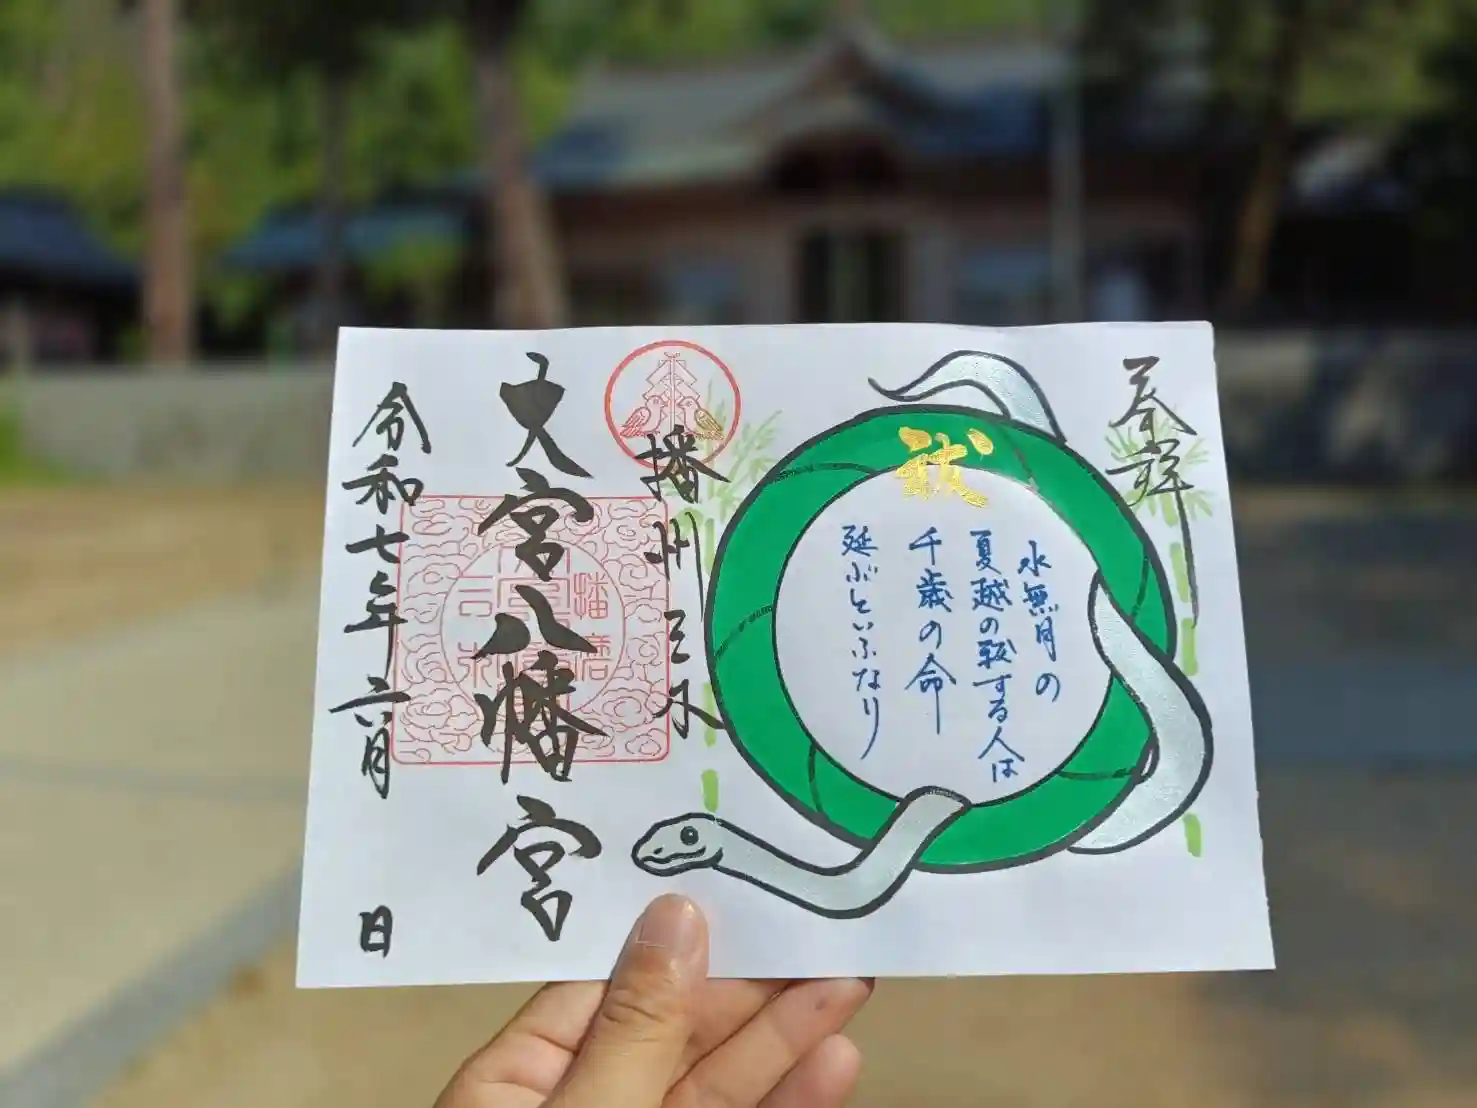 奉拝
水無月の
夏越の祓する人は
千歳の命
延ぶといふなり
祓
播州三木
大宮八幡宮
令和七年六月 日